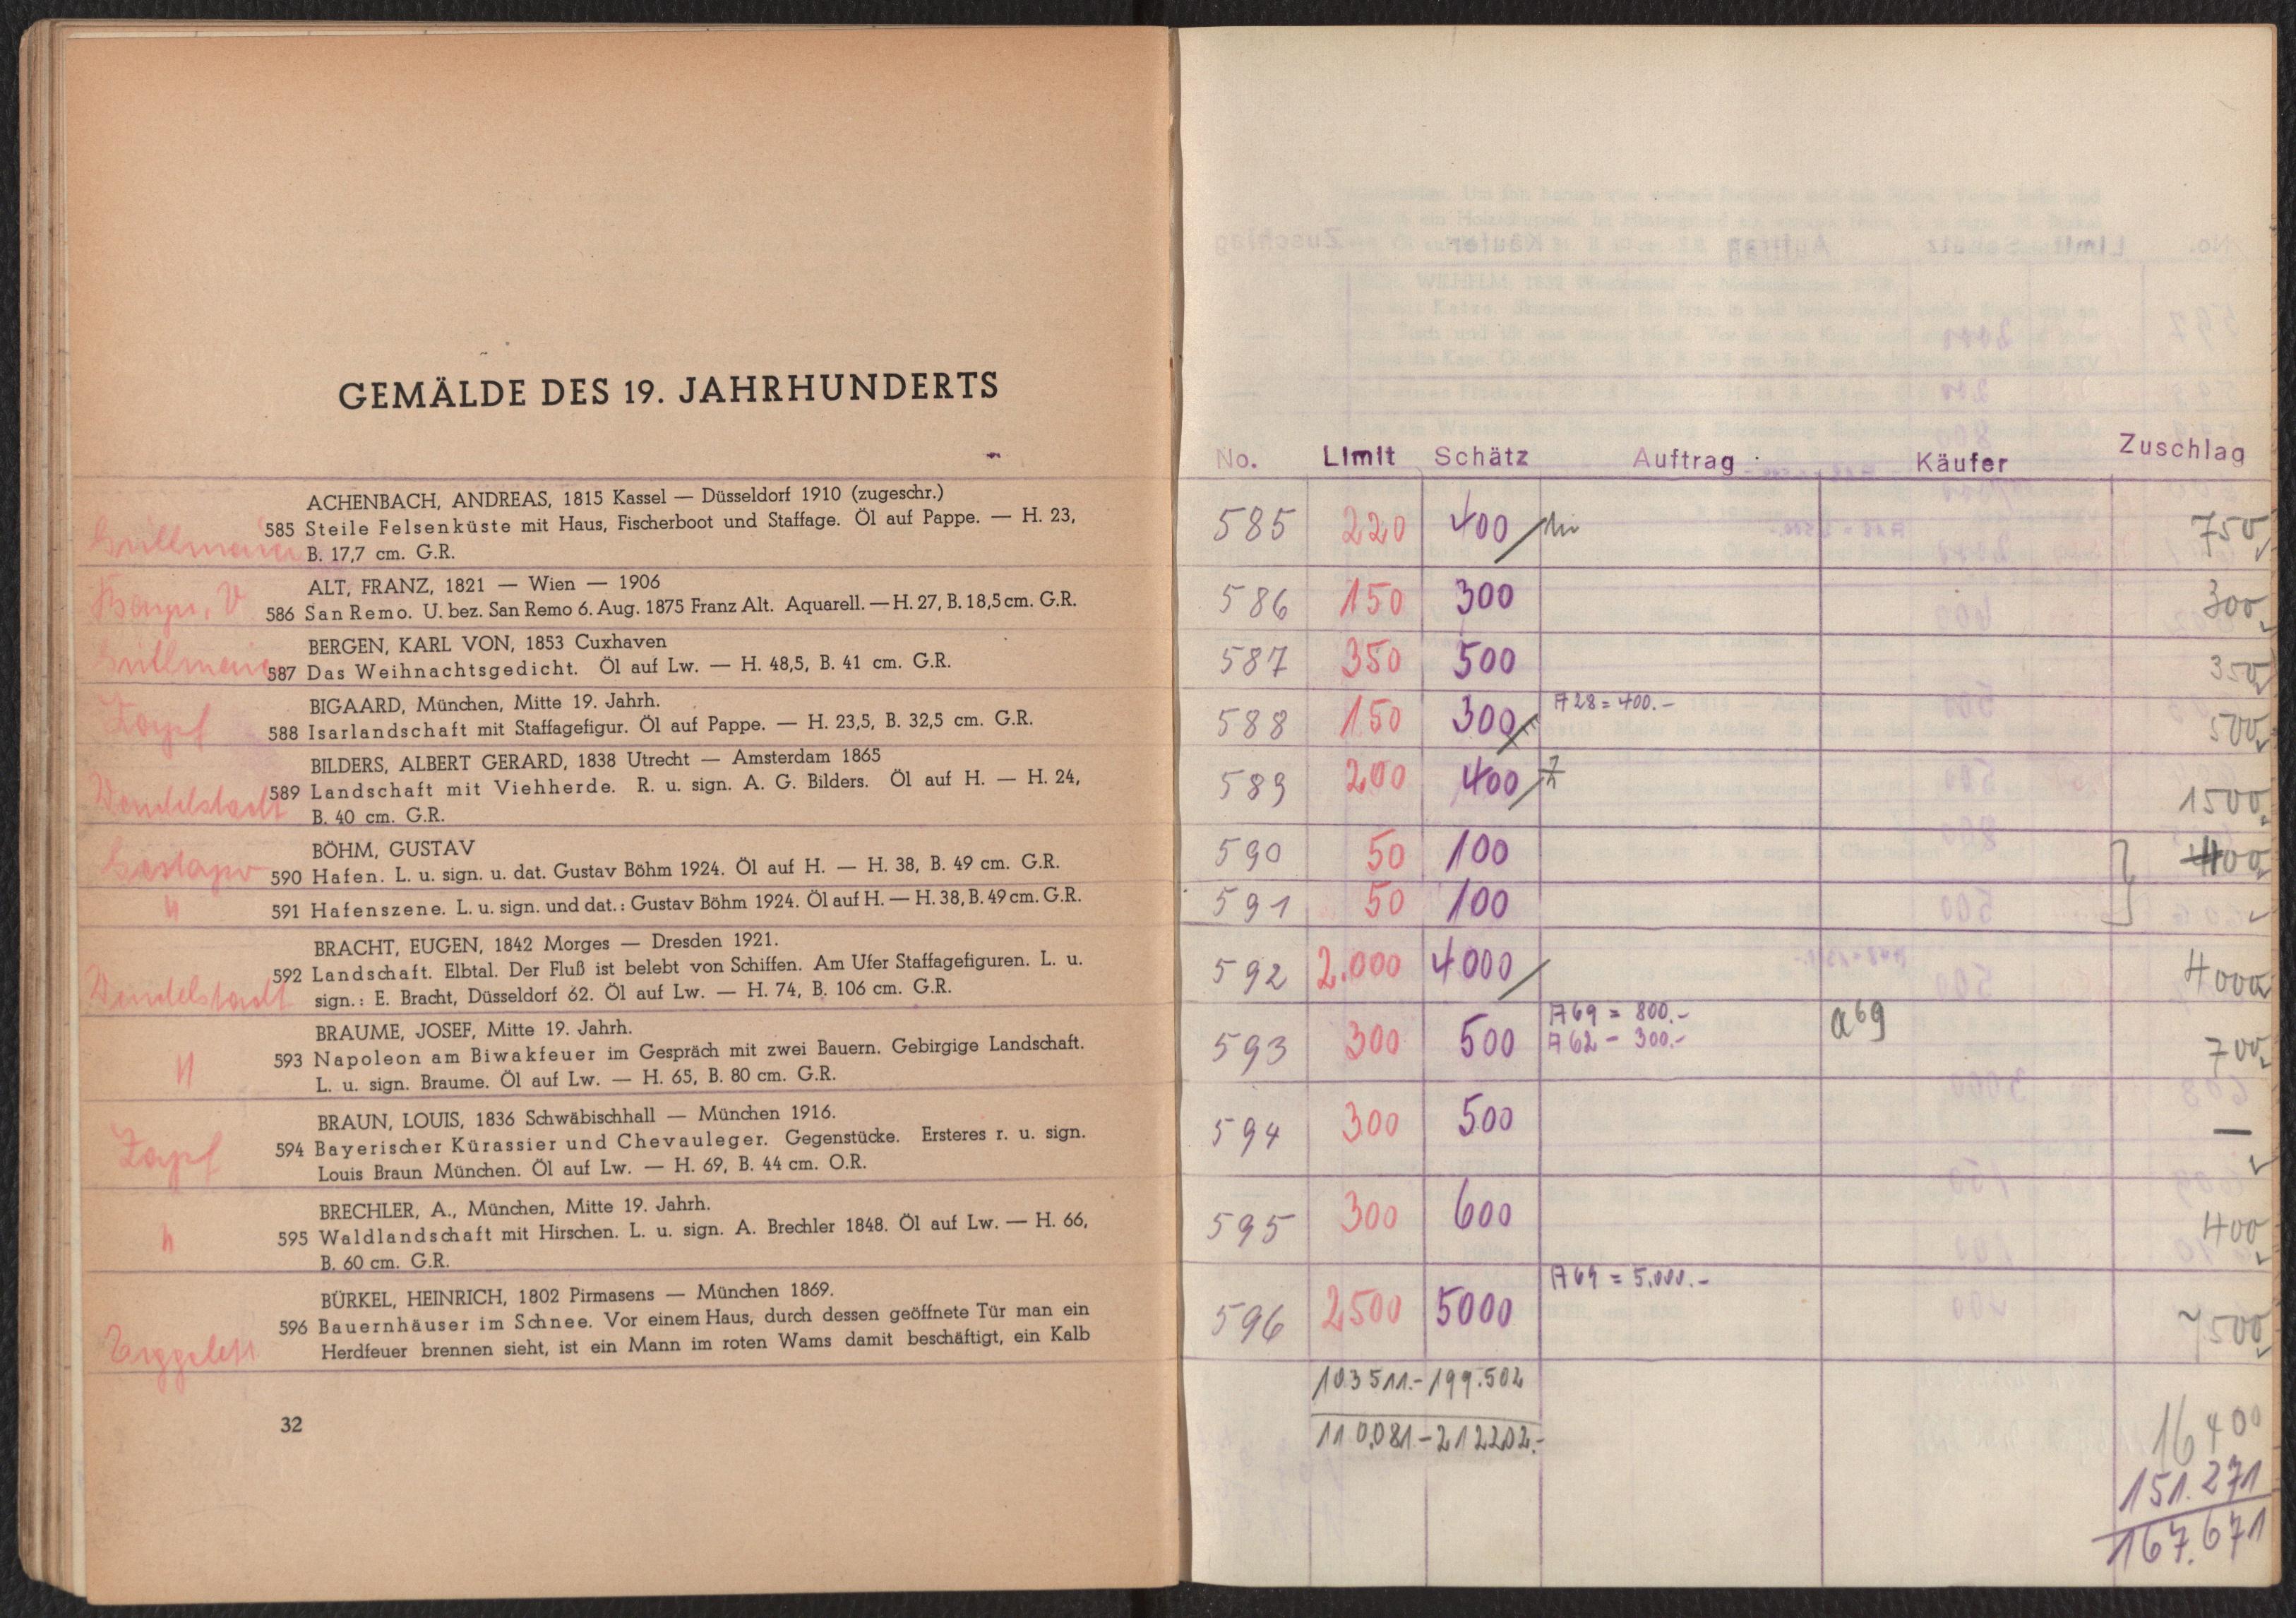 GEMÄLDE DES 19. JAHRHUNDERTS
ACHENBACH, ANDREAS, 1815 Kassel — Düsseldorf 1910 (zugeschr.)
585 Steile Felsenküste mit Haus, Fischerboot und Staffage. Öl auf Pappe. — H. 23,
B. 17,7 cm. G.R.
ALT, FRANZ, 1821 — Wien — 1906
586 San Remo. U. bez. San Remo 6. Aug. 1875 Franz Alt. Aquarell. — H. 27, B. 18,5 cm. G.R.
BERGEN, KARL VON, 1853 Cuxhaven
587 Das Weihnachtsgedicht. Öl auf Lw. — H. 48,5, B. 41 cm. G.R.
BIGAARD, München, Mitte 19. Jahrh.
Zapf
588 Isarlandschaft mit Staffagefigur. Öl auf Pappe. — H. 23,5, B. 32,5 cm. G.R.
BILDERS, ALBERT GERARD, 1838 Utrecht — Amsterdam 1865
589 Landschaft mit Viehherde. R. u. sign. A. G. Bilders. Öl auf H. — H. 24,
Wendelstadt
B. 40 cm. G.R.
BÖHM, GUSTAV
Gestapo
590 Hafen. L. u. sign. u. dat. Gustav Böhm 1924. Öl auf H. — H. 38, B. 49 cm. G.R.
"
591 Hafenszene. L. u. sign. und dat.: Gustav Böhm 1924. Öl auf H. — H. 38, B. 49 cm. G.R.
BRACHT, EUGEN, 1842 Morges — Dresden 1921.
592 Landschaft. Elbtal. Der Fluß ist belebt von Schiffen. Am Ufer Staffagefiguren. L. u.
Wendelstadt
sign.: E. Bracht, Düsseldorf 62. Öl auf Lw. — H. 74, B. 106 cm. G.R.
BRAUME, JOSEF, Mitte 19. Jahrh.
593 Napoleon am Biwakfeuer im Gespräch mit zwei Bauern. Gebirgige Landschaft.
"
L. u. sign. Braume. Öl auf Lw. — H. 65, B. 80 cm. G.R.
BRAUN, LOUIS, 1836 Schwäbischhall — München 1916.
Zapf
594 Bayerischer Kürassier und Chevauleger. Gegenstücke. Ersteres r. u. sign.
Louis Braun München. Öl auf Lw. — H. 69, B. 44 cm. O.R.
BRECHLER, A., München, Mitte 19. Jahrh.
"
595 Waldlandschaft mit Hirschen. L. u. sign. A. Brechler 1848. Öl auf Lw. — H. 66,
B. 60 cm. G.R.
BÜRKEL, HEINRICH, 1802 Pirmasens — München 1869.
596 Bauernhäuser im Schnee. Vor einem Haus, durch dessen geöffnete Tür man ein
Herdfeuer brennen sieht, ist ein Mann im roten Wams damit beschäftigt, ein Kalb
32
No. Limit Schätz Auftrag Käufer Zuschlag
585 220 400 750
586 150 300 300
587 350 500 350
588 150 300 A 28 = 400.- 500
589 200 400 1500
590 50 100 400
591 50 100
592 2.000 4000 4000
593 300 500 A 69 = 800.- a 69 700
A 62 - 300.-
594 300 500 —
595 300 600 400
596 2500 5000 A 69 = 5.000.- 7500
103511.- 199.502
110.081 - 212202.-
16400
151.271
167.671